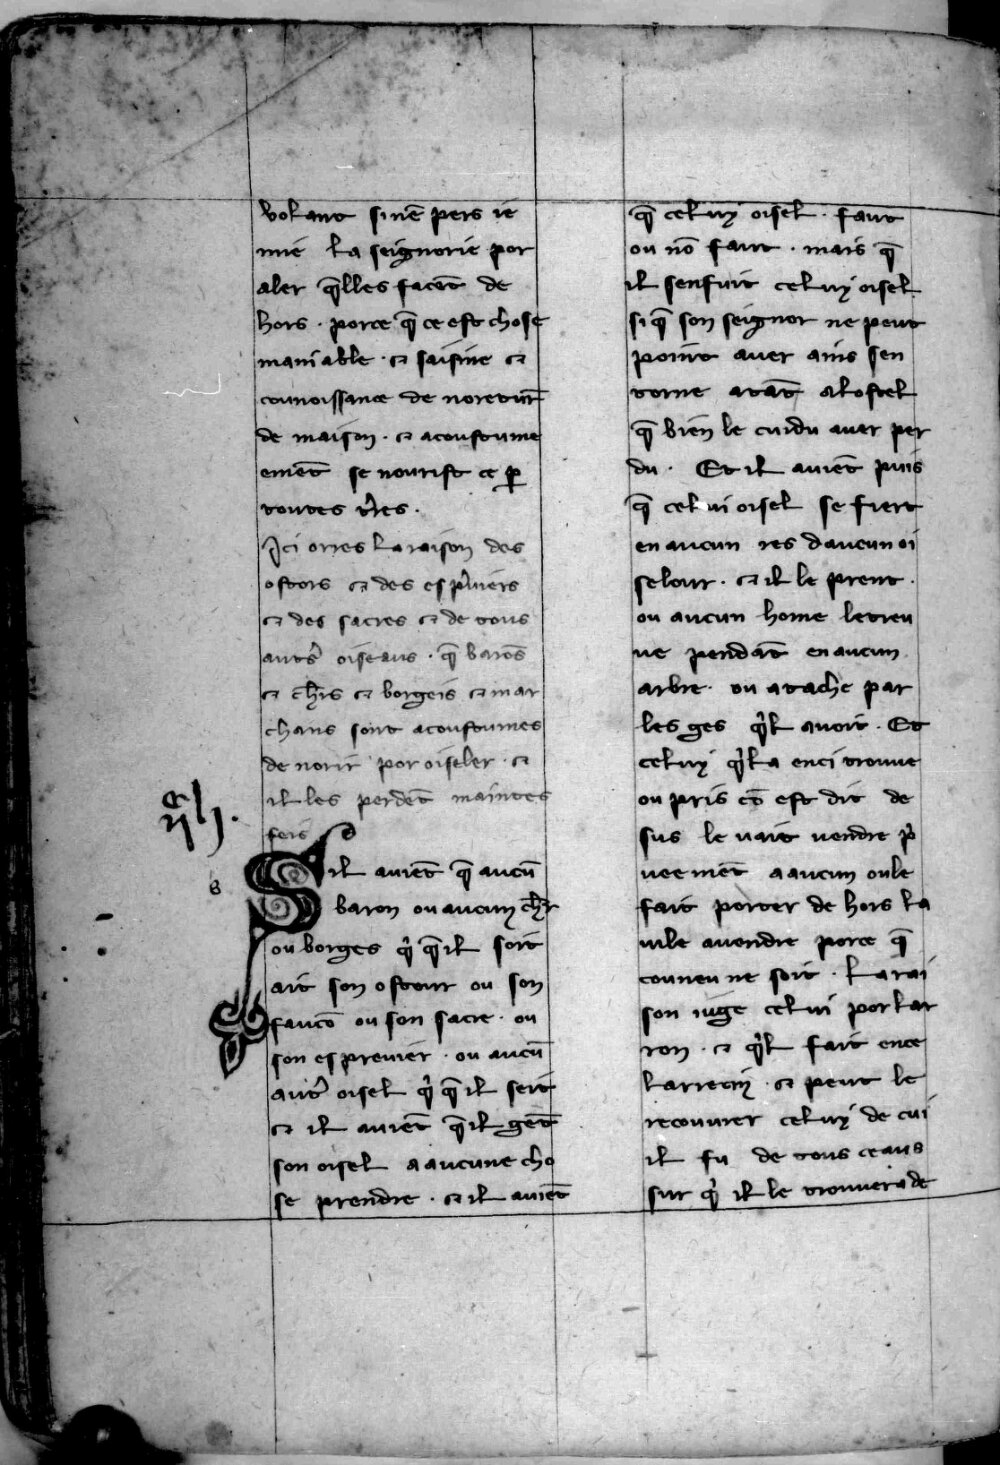 volant si nē pers ie
mie la seignorie por
aler q̄lles facēt de
hors · porce q̄ ce est chose
maniable · ⁊ saisine ⁊
connoissance de noretur̄
de maison · ⁊ acoustume
emēt se nourist ce ꝑ
toutes tr̄res ·
Ici orres la raison des
ostors ⁊ des esp̄uiers
⁊ des sacres ⁊ de tous
autr̄s oiseaus · q̄ barōs
⁊ ch̄rs ⁊ borgeis ⁊ mar
chans sont acoustumes
de norir por oiseler · ⁊
il les perdēt maintes
feis
Sil auiēt q̄ aucū
baron ou aucun ch̄r
ou borges q̄ q̄ il soit
ait son ostour ou son
faucō ou son sacre · ou
son espreuier · ou aucū
autr̄ oisel q̄ q̄ il seit
⁊ il auiēt q̄ il gēte
son oisel a aucune cho
se prendre · ⁊ il auiēt
q̄ celuy oisel · faut
ou nō faut · mais q̄
il senfuit celuy oisel
si q̄ son seignor ne peut
point auer ains sen
torne atāt alostel
q̄ bien le cuidu auer per
du · Et il auiēt puis
q̄ celui oisel se fiert
en aucun res daucun oi
selour · ⁊ il le prent ·
ou aucun home letreu
ue pendāt en aucun
arbre · ou atache par
les ges q̄l auoit · Et
celuy q̄ la enci trouue
ou pris cō est dit de
sus le uait uendre p̄
ueemēt a aucun ou le
fait porter de hors la
uile auendre porce q̄
couneu ne soit · La rai
son iuge celui por lar
ron · ⁊ q̄l fait ence
larrecin · ⁊ peut le
recouurer celuy de cui
il fu de tous ceaus
sur q̄ il le trouuera de